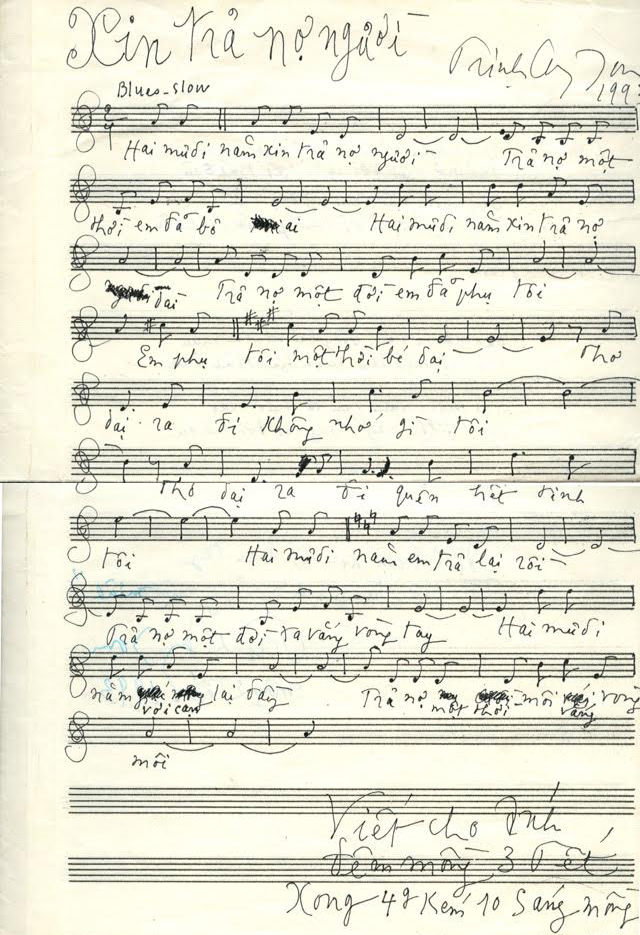 Xin trả nợ người
Trịnh Công Sơn
Blues-slow
199
Hai mươi năm xin trả nợ người Trả nợ một
thời em đã bỏ ai Hai mươi năm xin trả nợ
dài Trả nợ một đời em đã phụ tôi
Em phụ tôi một thời bé dại Thơ
dại ra đi không nhớ gì tôi
Thơ dại ra đi quên hết tình
tôi Hai mươi năm em trả lại rồi
Trả nợ một đời xa vắng vòng tay Hai mươi
năm với cạn lại đầy Trả nợ một thời môi vắng vòng
môi
Viết cho Ánh
Đêm mồng 3 Tết
Xong 4g kém 10 Sáng mồng